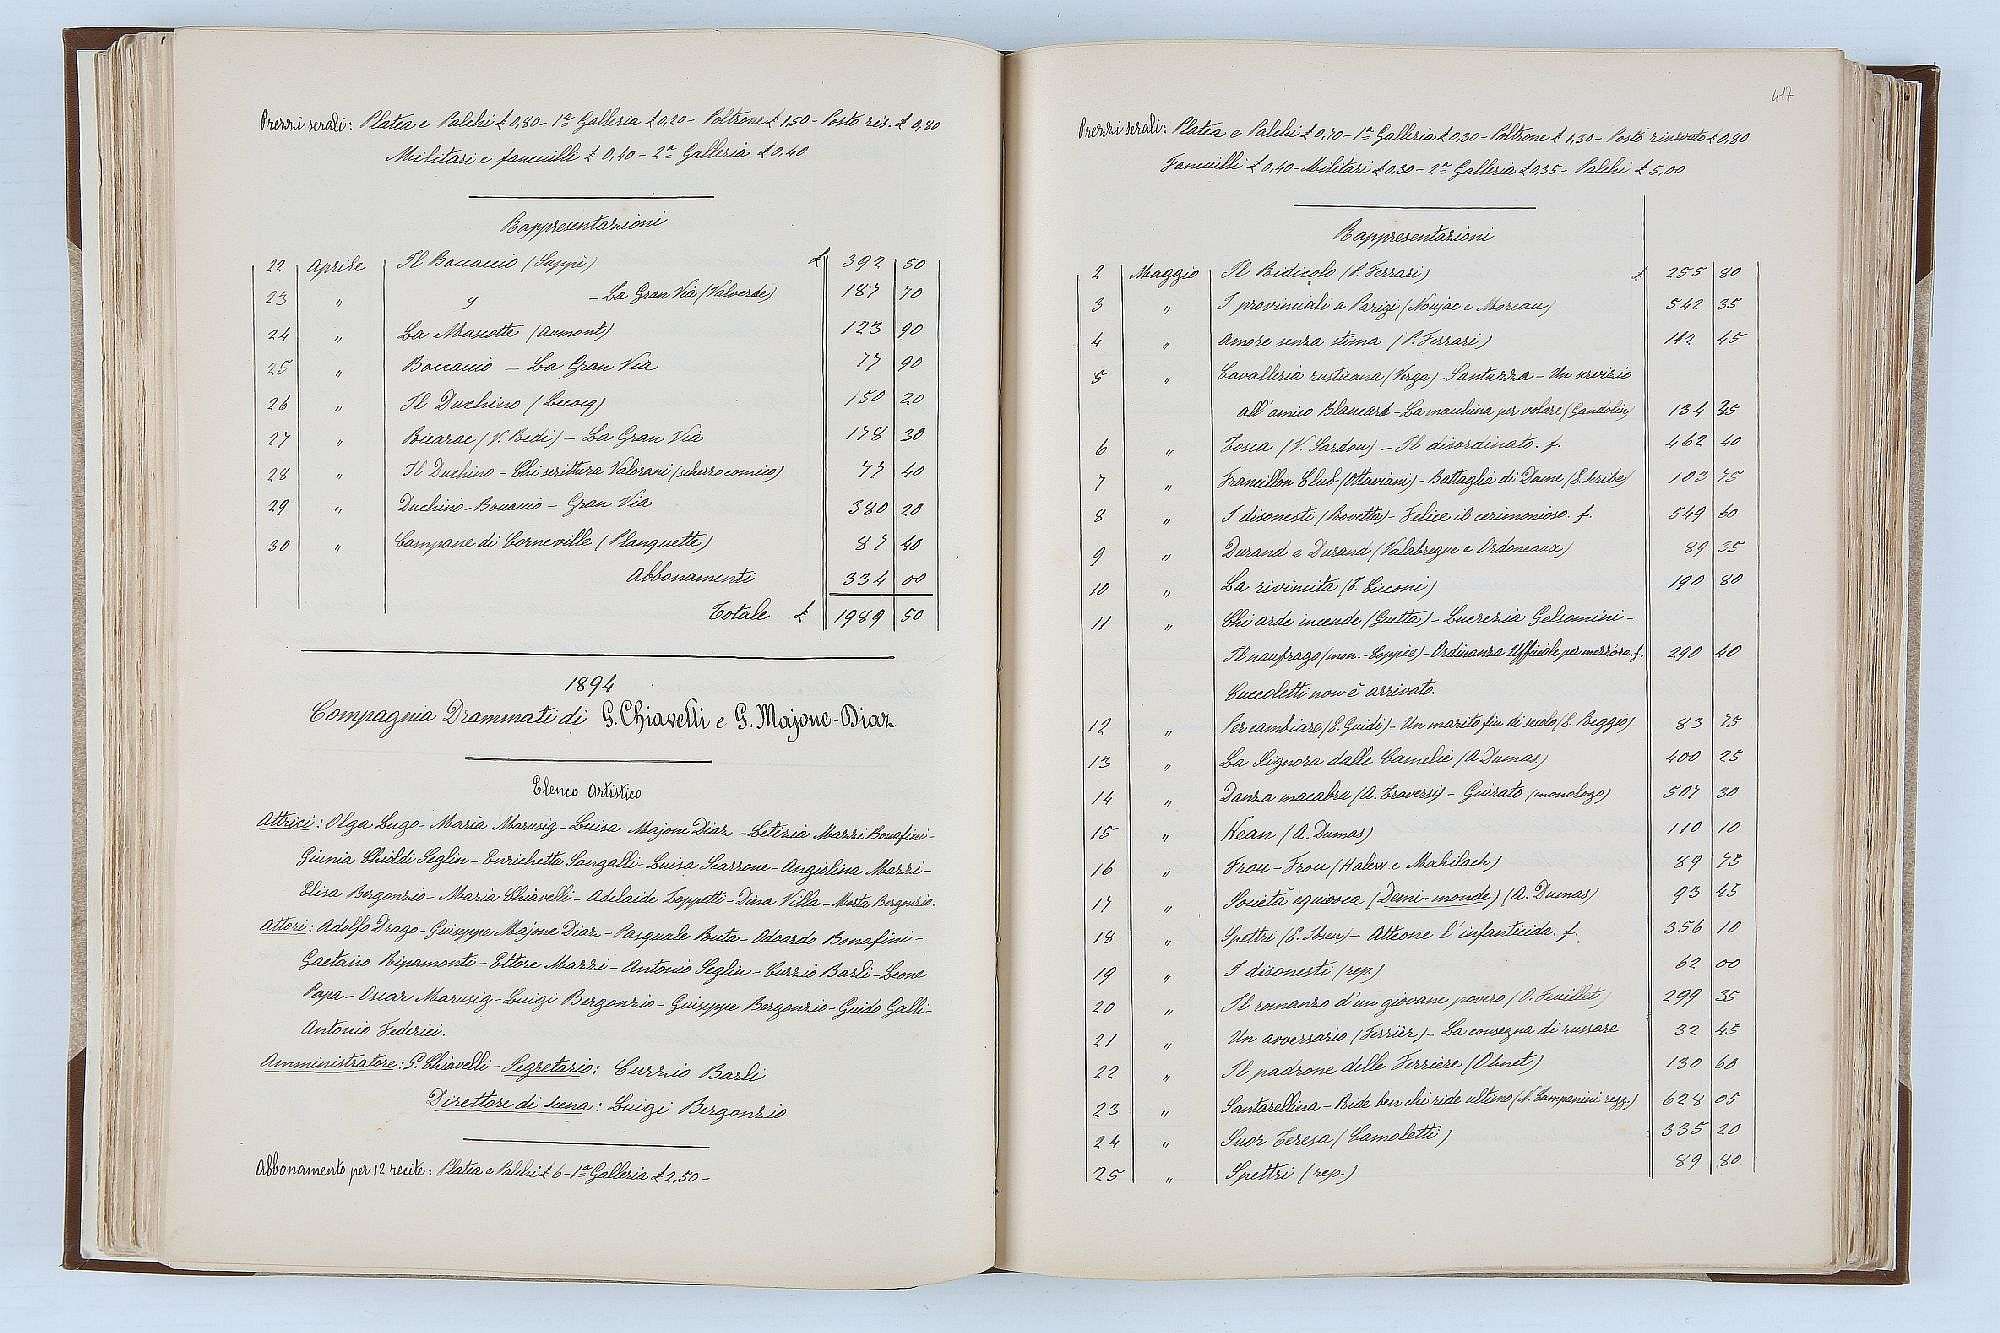 Prezzi serali: Platea e Palchi £ 0,80 - 1ª Galleria £ 0,20 - Poltrone £ 1,50 - Posto ris. £ 0,80
Militari e fanciulli £ 0,40 - 2ª Galleria £ 0,40
Rappresentazioni
22 Aprile Il Boccaccio (Suppè) £ 392 50
23 " " - La Gran Via (Valverde) 187 70
24 " La Mascotte (Audmont) 123 90
25 " Boccaccio - La Gran Via 77 90
26 " Il Duchino (Lecocq) 150 20
27 " (V. Redi) - La Gran Via 178 30
28 " Il Duchino - Chi scrittura Valorani (scherzo comico) 77 40
29 " Duchino - Boccaccio - Gran Via 380 20
30 " Campane di Corneville (Planquette) 87 40
Abbonamenti 334 00
Totale £ 1989 50
1894
Compagnia Drammati di G. Chiavelli e G. Majone-Diaz
Elenco Artistico
Attrici: Olga Lugo - Maria Marusig - Luisa Majone Diaz - Letizia Mazzi Bonafini -
Giunia Ghioldi Seglin - Enrichetta Sangalli - Luisa Scarrone - Angiolina Mazzi -
Elisa Bergonzio - Maria Chiavelli - Adelaide Zoppetti - Dina Villa - Bergonzio.
Attori: Adolfo Drago - Giuseppe Majone Diaz - Pasquale Buta - Odoardo Bonafini -
Gaetano Ripamonti - Ettore Mazzi - Antonio Seglin - Curzio Basli - Leone
Papa - Oscar Marusig - Luigi Bergonzio - Giuseppe Bergonzio - Guido Galli -
Antonio Federici.
Amministratore: G. Chiavelli - Segretario: Curzio Basli
Direttore di scena: Luigi Bergonzio
Abbonamento per 12 recite: Platea e Palchi £ 6 - 1ª Galleria £ 2,50 -
417
Prezzi serali: Platea e Palchi £ 0,70 - 1ª Galleria £ 0,30 - Poltrone £ 1,30 - Posto riservato £ 0,80
Fanciulli £ 0,40 - Militari £ 0,30 - 2ª Galleria £ 0,35 - Palchi £ 5,00
Rappresentazioni
2 Maggio Il Ridicolo (P. Ferrari) £ 255 80
3 " I provinciali a Parigi (Noujac e Moreau) 542 35
4 " Amore senza stima (P. Ferrari) 112 45
5 " Cavalleria rusticana (Verga) - Santuzza - Un servizio
all'amico Blancard - La macchina per volare (Gandolin) 134 35
6 " Tosca (V. Sardou) - Il disordinato. f. 462 40
7 " Francillon Club (Ottaviani) - Battaglia di Dame (E. Scribe) 103 75
8 " I disonesti (Rovetta) - Felice il cerimonioso. f. 549 60
9 " Durand e Durand (Valabregue e Ordoneaux) 89 35
10 " La rivincita (T. Cicconi) 190 80
11 " Chi arde incende (Giotta) - Lucrezia Gelsomini -
Il naufrago (mon. - Coppée) - Ordinanza Ufficiale per mezz'ora. f. 290 40
Cuccoletti non è arrivato.
12 " Per cambiare (E. Guidi) - Un marito fin di secolo (E. Reggio) 83 75
13 " La Signora dalle Camelie (A. Dumas) 400 25
14 " Danza macabra (A. Traversi) - Guirato (monologo) 507 30
15 " Kean (A. Dumas) 110 10
16 " Frou-Frou (Halevy e Mahilach) 89 75
17 " Società equivoca (Demi-monde) (A. Dumas) 93 45
18 " Spettri (E. Ibsen) - Atteone l'infanticida. f. 356 10
19 " I disonesti (rep.) 62 00
20 " Il romanzo d'un giovane povero (O. Feuillet) 299 35
21 " Un avversario (Ferrier) - La consegna di russare 32 45
22 " Il padrone delle Ferriere. (Ohnet) 130 60
23 " Santarellina - Ride ben chi ride ultimo (N. Campanini regg.) 628 05
24 " Suor Teresa (Camoletti) 335 20
25 " Spettri (rep.) 89 80